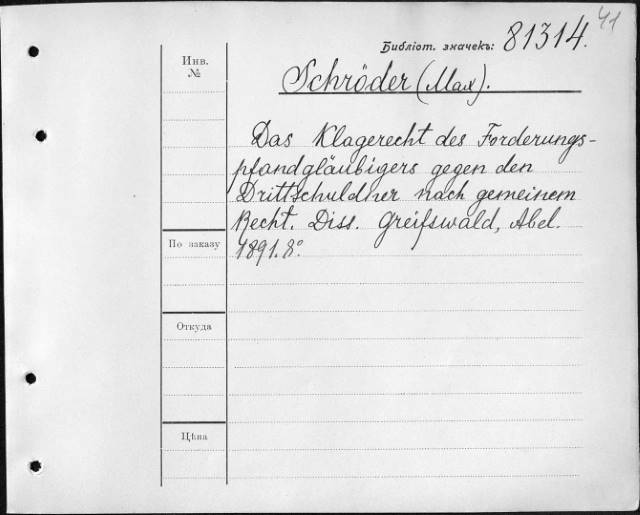 41
Библіот. значекъ: 81314.
Инв.
№
Schröder (Max).
Das Klagerecht des Forderungs-
pfandgläubigers gegen den
Drittschuldner nach gemeinem
Recht. Diss. Greifswald, Abel.
1891. 8°.
По заказу
Откуда
Цѣна